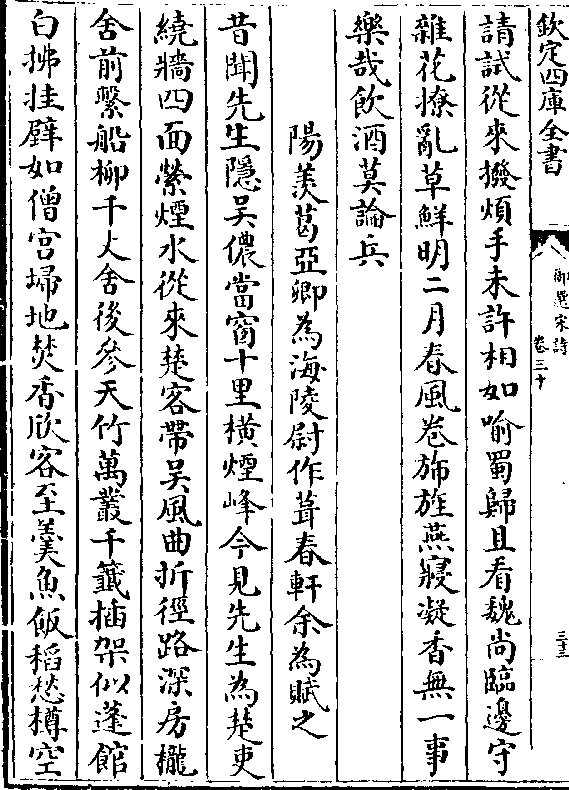 欽定四庫全書
御選宋詩
卷三十
三十三
請試從來撥煩手未許相如喻蜀歸且看魏尚臨邊守
雜花撩亂草鮮明二月春風卷斾旌燕寢凝香無一事
樂哉飲酒莫論兵
陽羡葛亞卿為海陵尉作葺春軒余為賦之
昔聞先生隱吴儂當窗十里横煙峰今見先生為楚吏
繞牆四面縈煙水從來楚客帶吴風曲折徑路深房櫳
舍前繫船柳千丈舍後參天竹萬叢千籖插架似蓬館
白拂挂壁如僧宫埽地焚香欣客至羮魚飯稻愁樽空